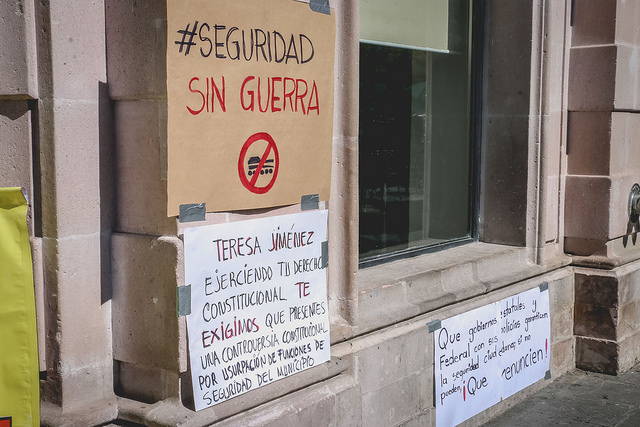 #SEGURIDAD
SIN GUERRA
TERESA JIMÉNEZ
EJERCIENDO TU DERECHO
CONSTITUCIONAL TE
EXIGIMOS QUE PRESENTES
UNA CONTROVERSIA CONSTITUCIONAL
POR USURPACIÓN DE FUNCIONES DE
SEGURIDAD DEL MUNICIPIO
Que gobiernos estatales y
Federal con sus policías garanticen
la seguridad ciudadana, si no
pueden ¡Que renuncien!